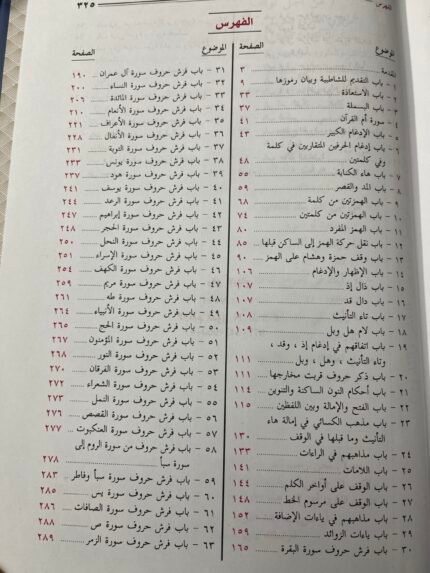 الفهرس ٣٢٥
الفهرس
الموضوع الصفحة
المقدمة ٣
١ - باب التقديم للشاطبية وبيان رموزها ٩
٢ - باب الاستعاذة ٣٣
٣ - باب البسملة ٣٧
٤ - سورة أم القرآن ٤١
٥ - باب الإدغام الكبير ٤٣
٦ - باب إدغام الحرفين المتقاربين في كلمة
وفي كلمتين ٤٨
٧ - باب هاء الكناية ٥٥
٨ - باب المد والقصر ٥٩
٩ - باب الهمزتين من كلمة ٦٨
١٠ - باب الهمزتين من كلمتين ٧٤
١١ - باب الهمز المفرد ٨٠
١٢ - باب نقل حركة الهمز إلى الساكن قبلها ٨٥
١٣ - باب وقف حمزة وهشام على الهمز ٩٠
١٤ - باب الإظهار والإدغام ١٠٦
١٥ - باب ذال إذ ١٠٧
١٦ - باب دال قد ١٠٧
١٧ - باب تاء التأنيث ١٠٨
١٨ - باب لام هل وبل ١٠٩
١٩ - باب اتفاقهم في إدغام إذ ، وقد ،
وتاء التأنيث ، وهل ، وبل ١١١
٢٠ - باب ذكر حروف قربت مخارجها ١١١
٢١ - باب أحكام النون الساكنة والتنوين ١١٤
٢٢ - باب الفتح والإمالة وبين اللفظين ١١٥
٢٣ - باب مذهب الكسائي في إمالة هاء
التأنيث وما قبلها في الوقف ١٣٠
٢٤ - باب مذاهبهم في الراءات ١٣٣
٢٥ - باب اللامات ١٤١
٢٦ - باب الوقف على أواخر الكلم ١٤٤
٢٧ - باب الوقف على مرسوم الخط ١٤٨
٢٨ - باب مذاهبهم في ياءات الإضافة ١٥٢
٢٩ - باب ياءات الزوائد ١٥٩
٣٠ - باب فرش حروف سورة البقرة ١٦٥
الموضوع الصفحة
٣١ - باب فرش حروف سورة آل عمران ١٩٠
٣٢ - باب فرش حروف سورة النساء ٢٠٠
٣٣ - باب فرش حروف سورة المائدة ٢٠٦
٣٤ - باب فرش حروف سورة الأنعام ٢١٠
٣٥ - باب فرش حروف سورة الأعراف ٢٢١
٣٦ - باب فرش حروف سورة الأنفال ٢٢٨
٣٧ - باب فرش حروف سورة التوبة ٢٣١
٣٨ - باب فرش حروف سورة يونس ٢٣٣
٣٩ - باب فرش حروف سورة هود ٢٣٧
٤٠ - باب فرش حروف سورة يوسف ٢٤١
٤١ - باب فرش حروف سورة الرعد ٢٤٤
٤٢ - باب فرش حروف سورة إبراهيم ٢٤٧
٤٣ - باب فرش حروف سورة الحجر ٢٤٨
٤٤ - باب فرش حروف سورة النحل ٢٥٠
٤٥ - باب فرش حروف سورة الإسراء ٢٥١
٤٦ - باب فرش حروف سورة الكهف ٢٥٤
٤٧ - باب فرش حروف سورة مريم ٢٥٩
٤٨ - باب فرش حروف سورة طه ٢٦١
٤٩ - باب فرش حروف سورة الأنبياء ٢٦٤
٥٠ - باب فرش حروف سورة الحج ٢٦٥
٥١ - باب فرش حروف سورة المؤمنون ٢٦٧
٥٢ - باب فرش حروف سورة النور ٢٦٨
٥٣ - باب فرش حروف سورة الفرقان ٢٧٠
٥٤ - باب فرش حروف سورة الشعراء ٢٧٢
٥٥ - باب فرش حروف سورة النمل ٢٧٣
٥٦ - باب فرش حروف سورة القصص ٢٧٦
٥٧ - باب فرش حروف سورة العنكبوت ٢٧٧
٥٨ - باب فرش حروف من سورة الروم إلى
سورة سبأ ٢٧٨
٥٩ - باب فرش حروف سورة سبأ وفاطر ٢٨٣
٦٠ - باب فرش حروف سورة يس ٢٨٥
٦١ - باب فرش حروف سورة الصافات ٢٨٦
٦٢ - باب فرش حروف سورة ص ٢٨٨
٦٣ - باب فرش حروف سورة الزمر ٢٨٩